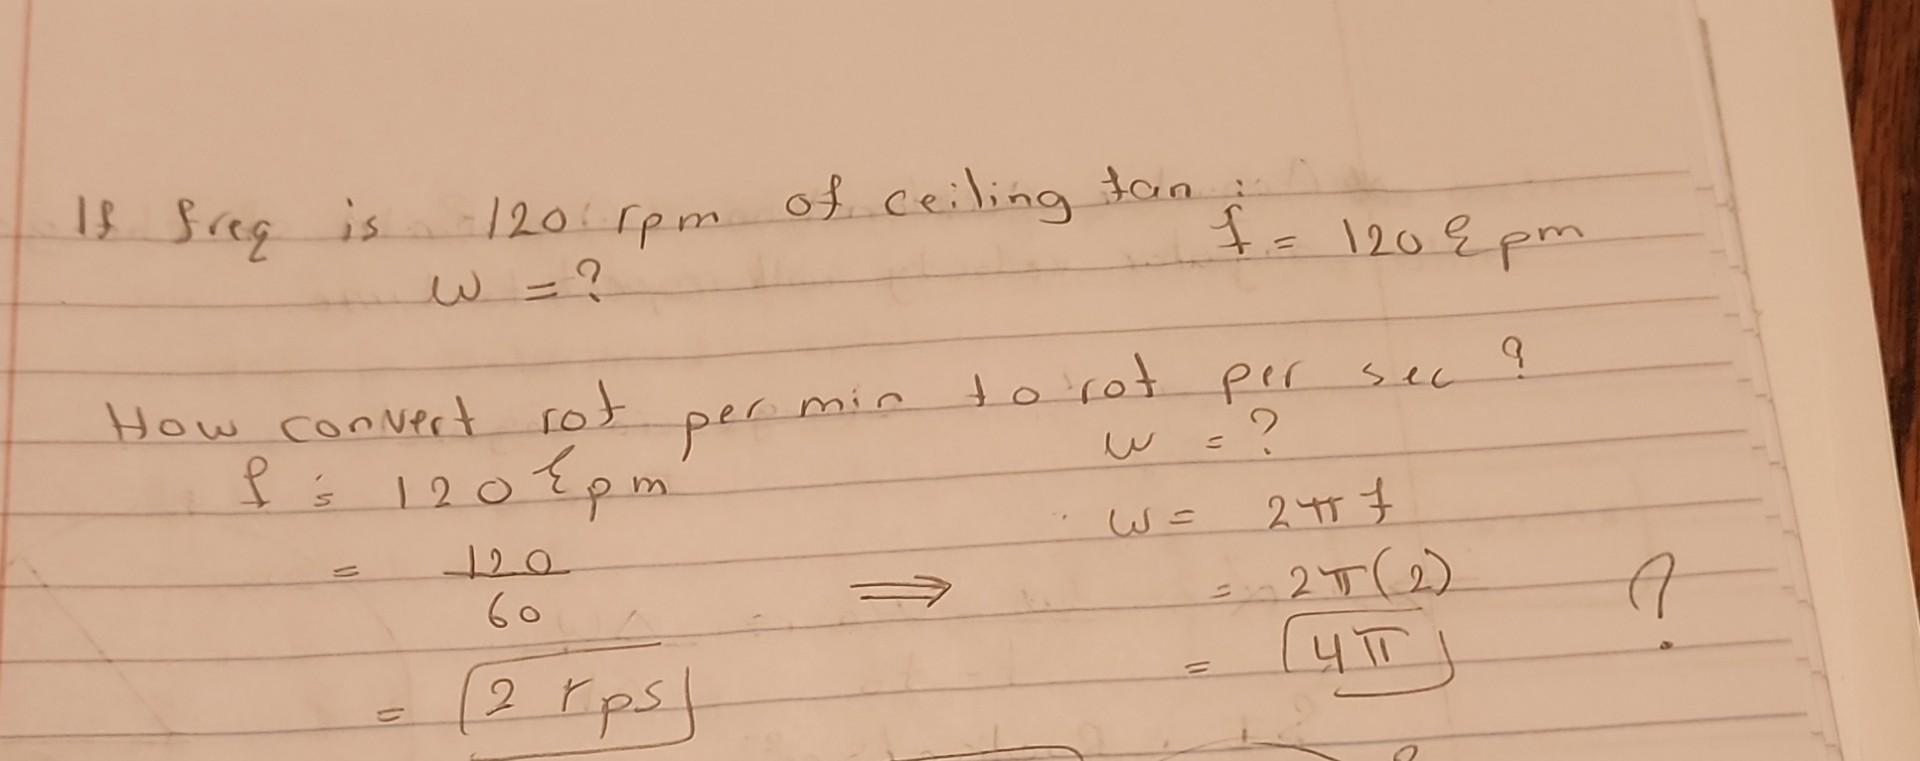 If freq is 120 rpm of ceiling fan :
f = 120 rpm
w = ?
How convert rot per min to rot per sec ?
f = 120 rpm
= 120
60
= 2 rps
⟹
w = ?
w = 2πf
= 2π(2)
= 4π
?